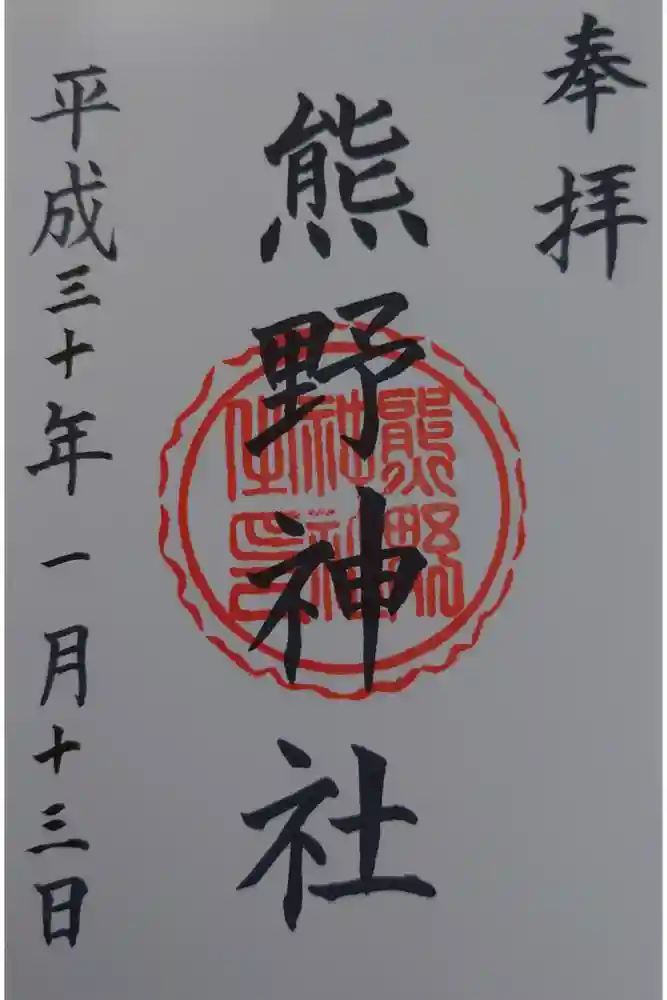 奉拝
熊野神社
熊野
社神
生印
平成三十年一月十三日